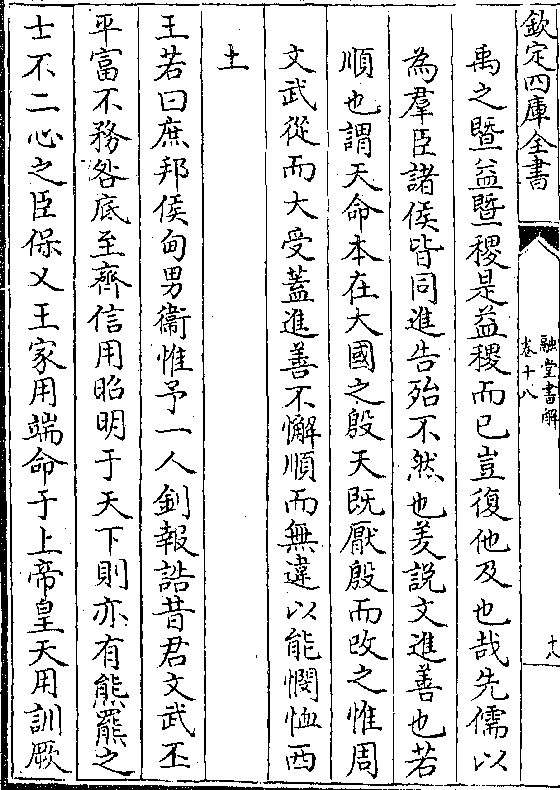 欽定四庫全書
融堂書解
卷十八
十八
禹之曁益曁稷是益稷而已豈復他及也哉先儒以
為羣臣諸侯皆同進告殆不然也羑說文進善也若
順也謂天命本在大國之殷天既厭殷而改之惟周
文武從而大受蓋進善不懈順而無違以能憫恤西
土
王若曰庶邦侯甸男衞惟予一人釗報誥昔君文武丕
平富不務咎底至齊信用昭明于天下則亦有熊羆之
士不二心之臣保乂王家用端命于上帝皇天用訓厥